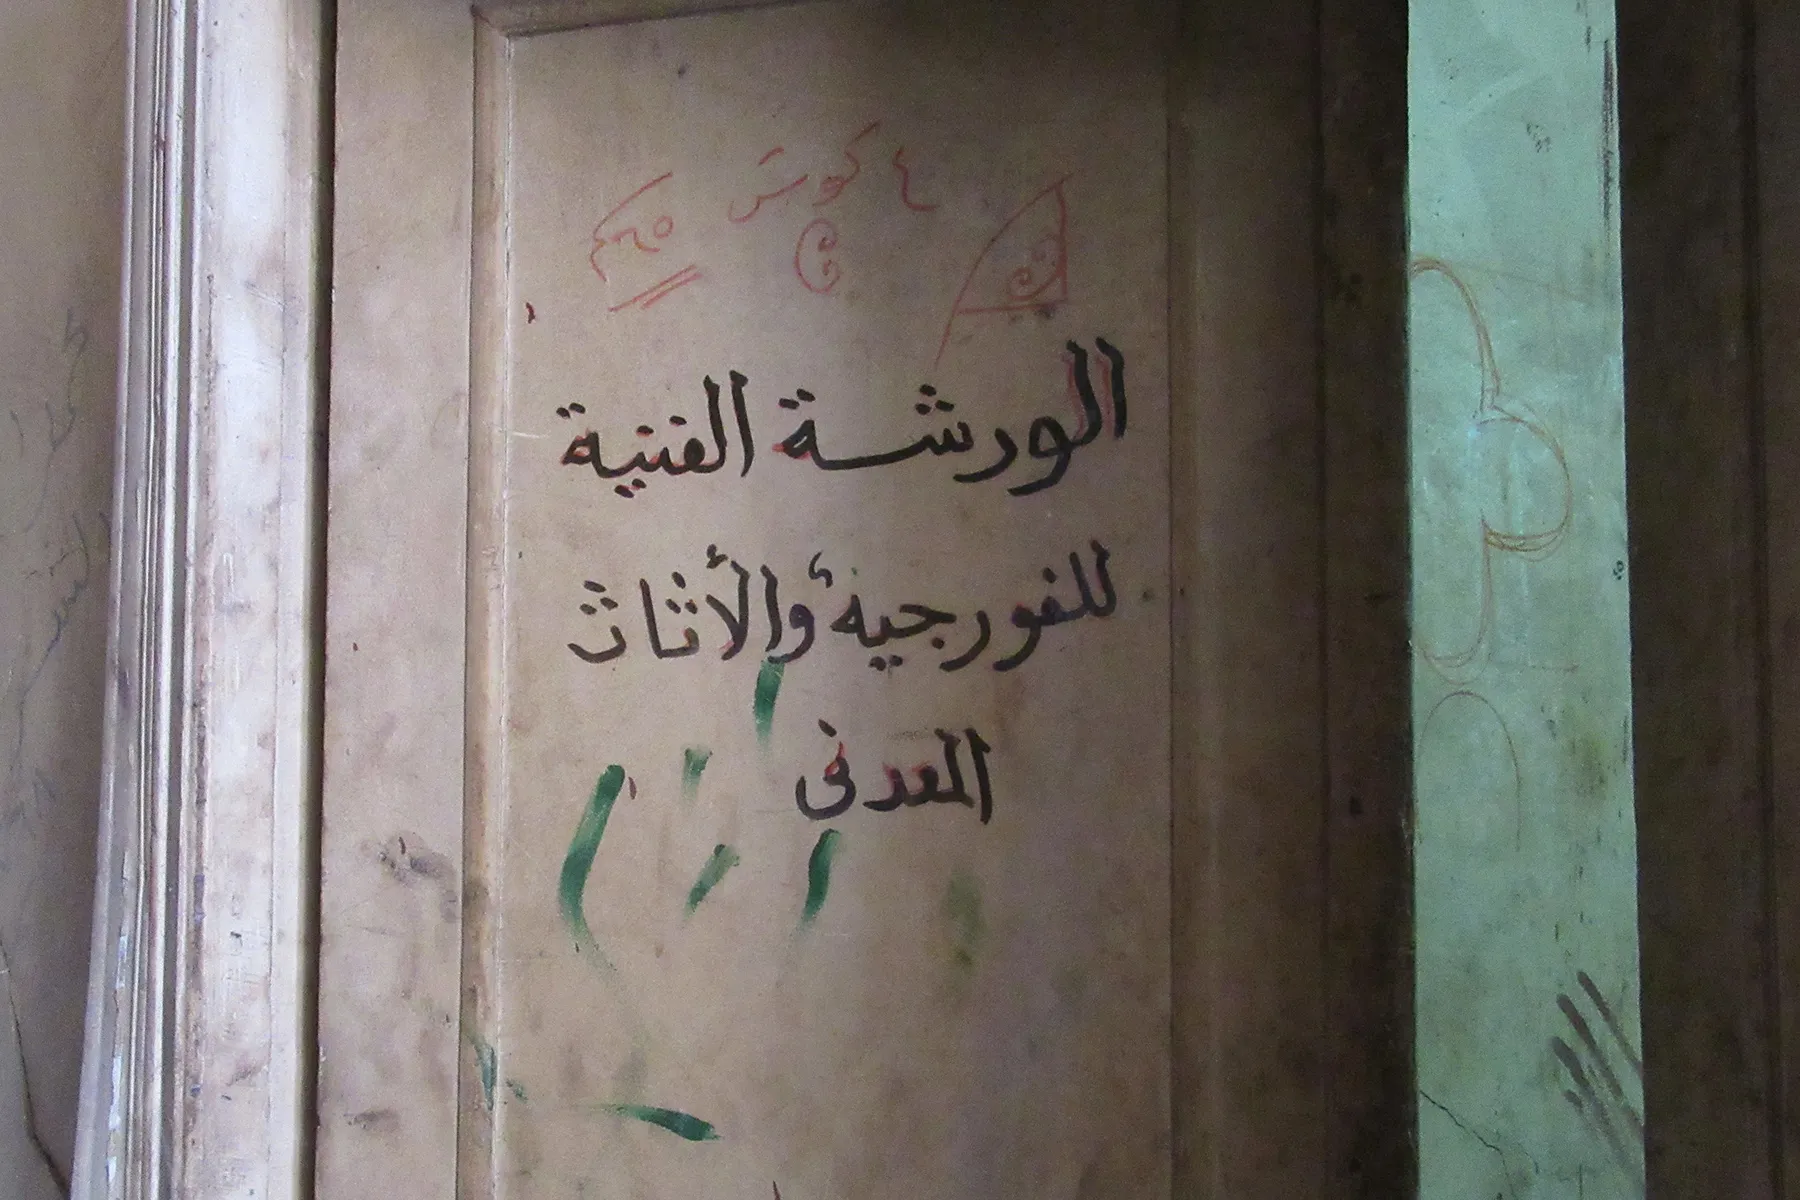 الورشة الفنية
للفورجية والأثاث
المعدنى